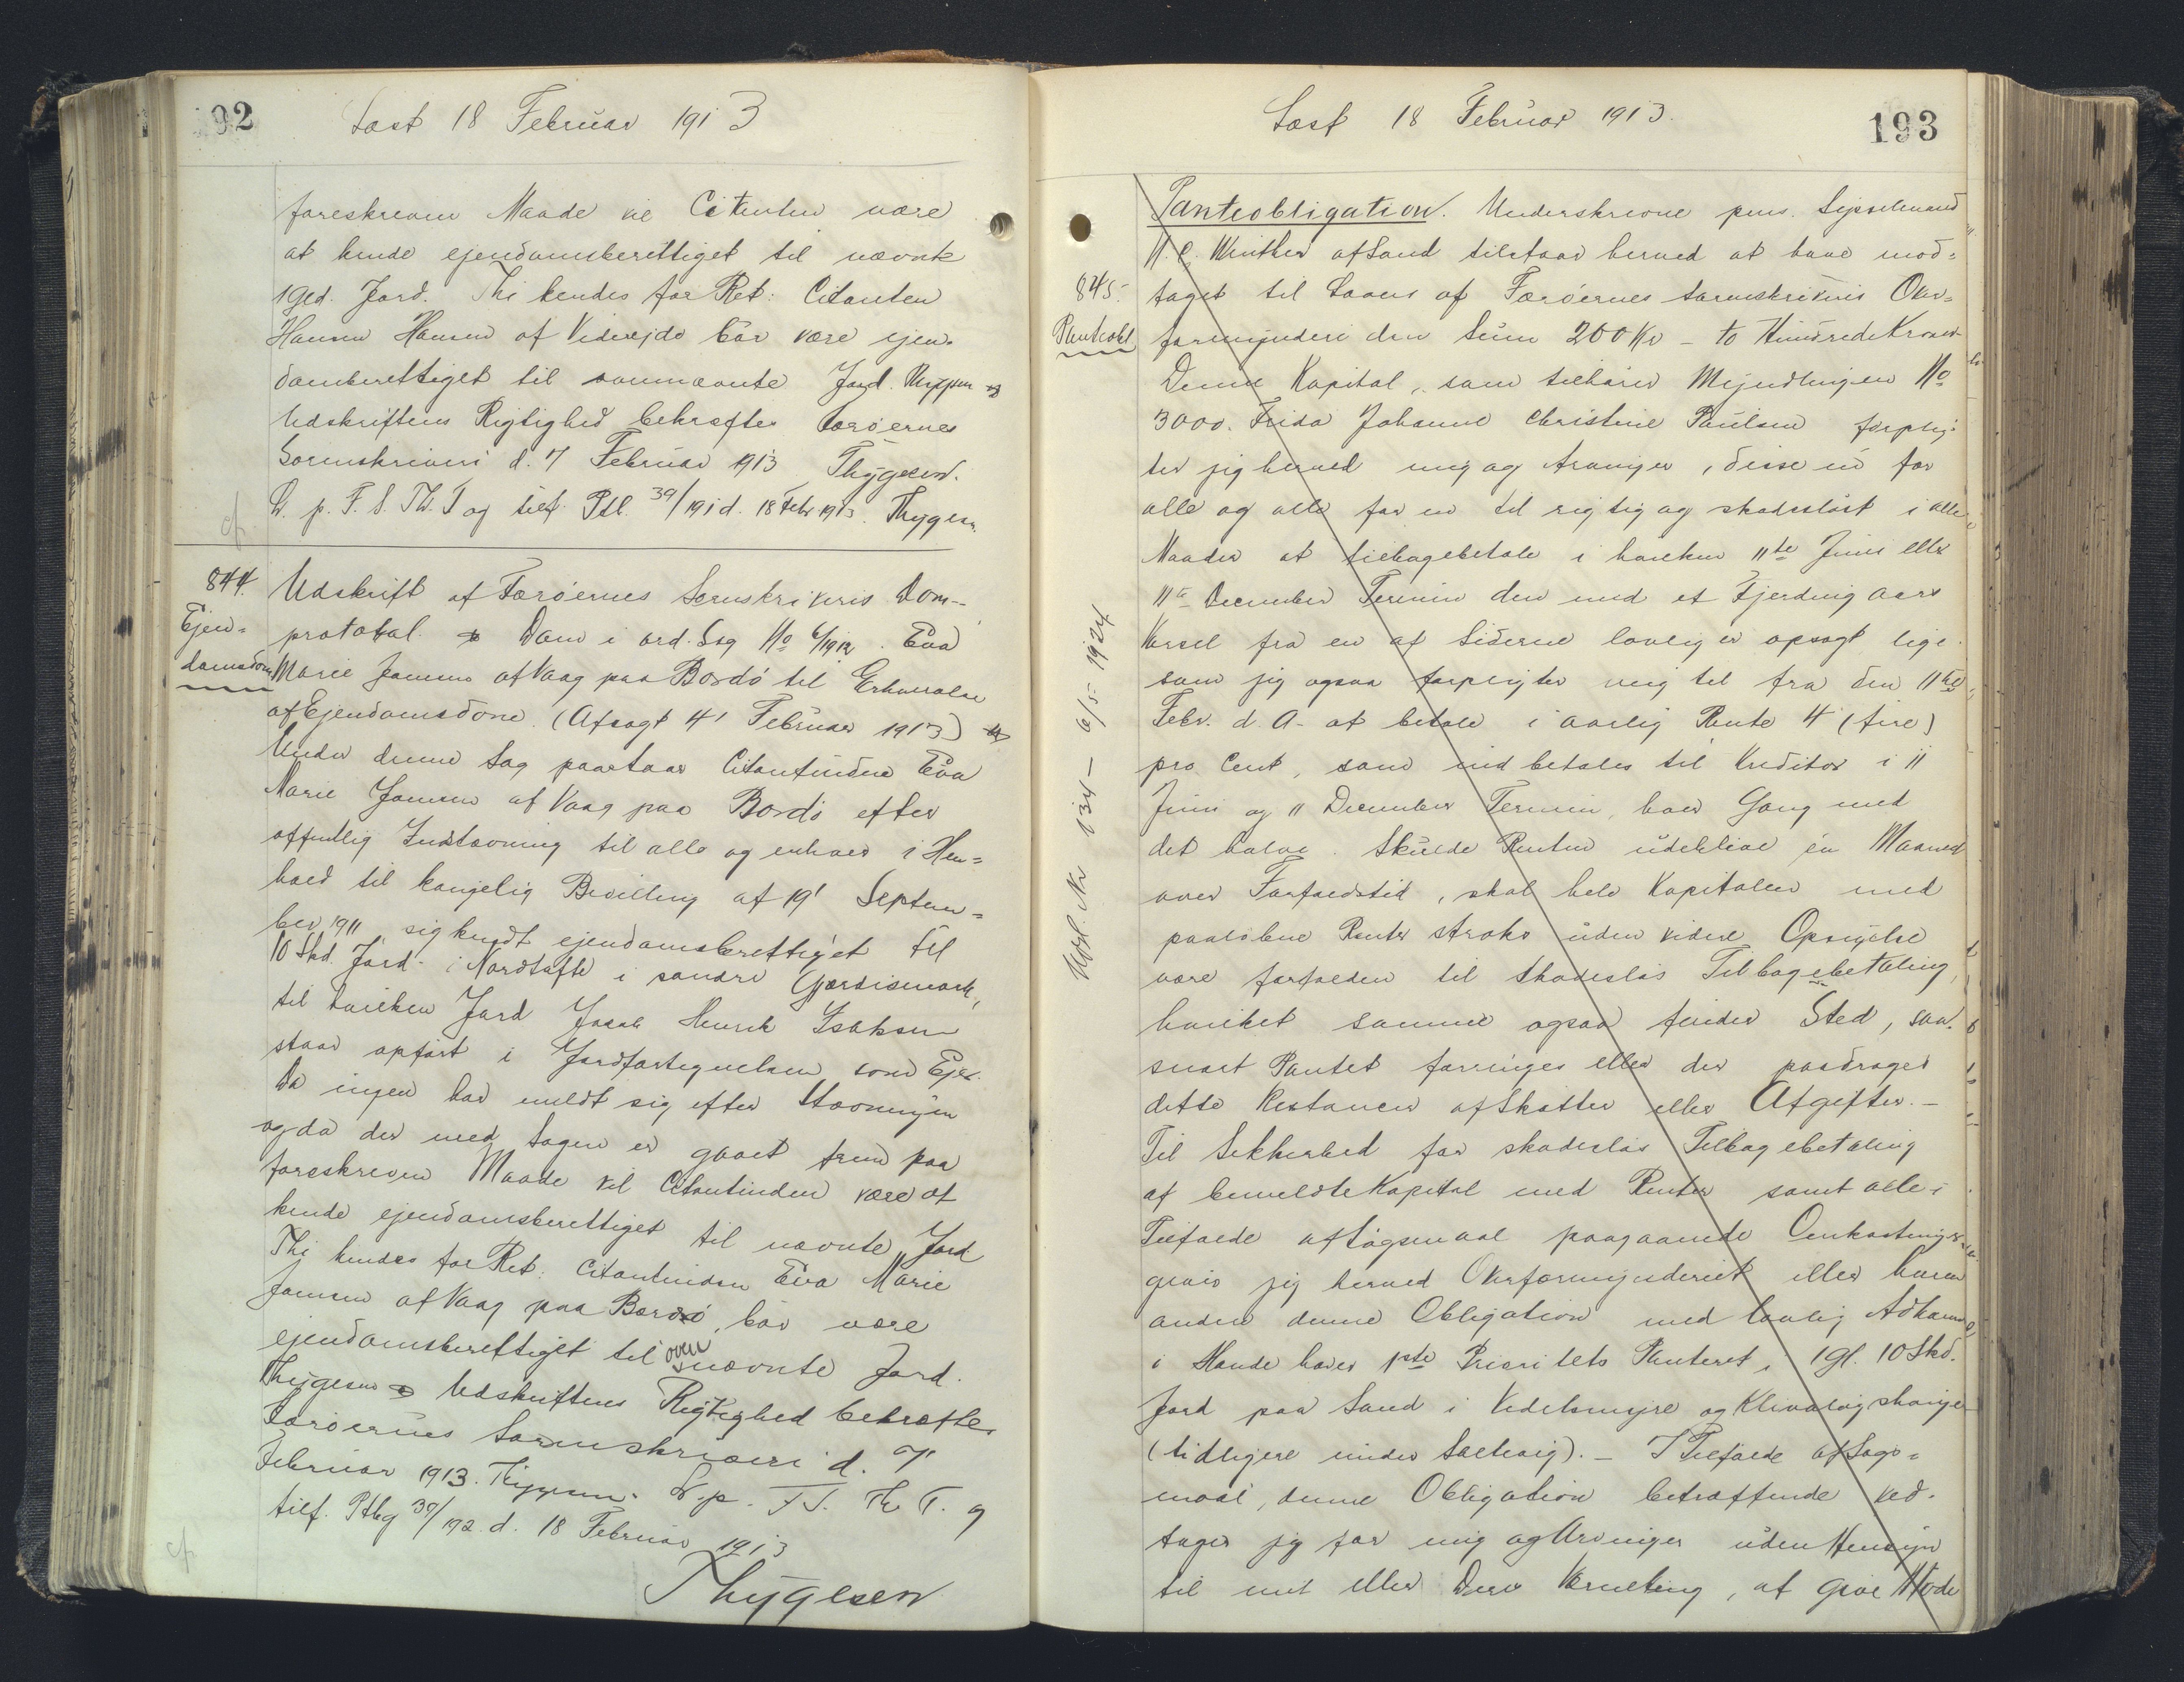 192
Læst 18 Februar 1913
foreskreven Maade vil Citanten være
at kende ejendomsberettiget til nævnte
1 Gld. Jord. Thi kendes for Ret: Citanten
Hansen af Viderejde bør være ejen-
domsberettiget til ovennævnte Jord. Thygesen
Udskriftens Rigtighed bekræftes Færøernes
Sorenskriveri d. 7 Februar 1913 Thygesen.
L. p. F. S. Th. T og tilf. Ptl. 39/191 d. 18 Febr 1913. Thygesen
cf.
844.
Ejen=
domsdom
Udskrift af Færøernes Sorenskriveris Dom-
protokol. Dom i ord. Sag No 6/1912. Eva
Marie Joensen af Vaag paa Bordø til Erhvervelse
af Ejendomsdom. (Afsagt 4' Februar 1913)
Under denne Sag paastaar Citantinden Eva
Marie Joensen af Vaag paa Bordø efter
offentlig Indstævning til alle og enhver i Hen=
hold til kongelig Bevilling af 19' Septem=
ber 1911 sig kendt ejendomsberettiget til
10 Skd. Jord i Nordtofte i søndre Gjærdismark,
til hvilken Jord Jacob Henrik Isaksen
staar opført i Jordfortegnelsen som Ejer.
Da ingen har meldt sig efter Stævningen
og da der med Sagen er gaaet frem paa
foreskreven Maade vil Citantinden være at
kende ejendomsberettiget til nævnte Jord
Thi kendes for Ret: Citantinden Eva Marie
Joensen af Vaag paa Bordø, bør være
ejendomsberettiget til ovennævnte Jord.
Thygesen Udskriftens Rigtighed bekræftes
Færøernes Sorenskriveri d. 7'
Februar 1913. Thygesen. L. p. F. S. Th. T. og
tilf. Ptbg 39/192. d. 18 Februar 1913
Thygesen
cf.
Læst 18 Februar 1913.
193
845.
Panteobl
Panteobligation. Underskrevne pens. Sysselmand
H. C. Winther af Sand tilstaar herved at have mod=
taget til Laans af Færøernes Sorenskriveris Over=
formynderi den Sum 200 Kr - to Hundrede Kroner
Denne Kapital, som tilhører Myndlingen No
3000. Frida Johanne Christine Paulsen forplig-
ter jeg herved mig og Arvinger, disse en for
alle og alle for en til rigtig og skadesløst i alle
Maader at tilbagebetale i hvilken 11te Juni eller
11te December Termin den med et Fjerding Aars
Varsel fra en af Siderne lovlig er opsagt, lige
som jeg ogsaa forpligter mig til fra den 11te
Febr. d. A. at betale i aarlig Rente 4 (fire)
pro Cent, som indbetales til Kreditor i 11
Juni og 11 December Termin, hver Gang med
det halve. Skulde Renten udeblive én Maaned
over Forfaldstid, skal hele Kapitalen med
paaløbne Renter straks uden videre Opsigelse
være forfalden til skadesløs Tilbagebetaling,
hvilket samme ogsaa finder Sted, saa-
snart Pantet forringes eller der paadrages
dette Restancer af Skatter eller Afgifter. -
Til Sikkerhed for skadesløs Tilbagebetaling
af bemeldte Kapital med Renter samt alle i
Tilfælde af Søgsmaal paagaaende Omkostninger
giver jeg herved Overformynderiet eller hvem
anden denne Obligation med lovlig Adkomst
i Hænde haver 1ste Prioritets Panteret i 1 Gl. 10 Skd.
Jord paa Sand i
(tidligere under Saltvig). - I Tilfælde af Søgs=
maal, denne Obligation betræffende ved-
tager jeg for mig og Arvinger uden Hensyn
til mit eller Deres Værneting, at give Møde
Udsl. No 134 - 6/5 1924